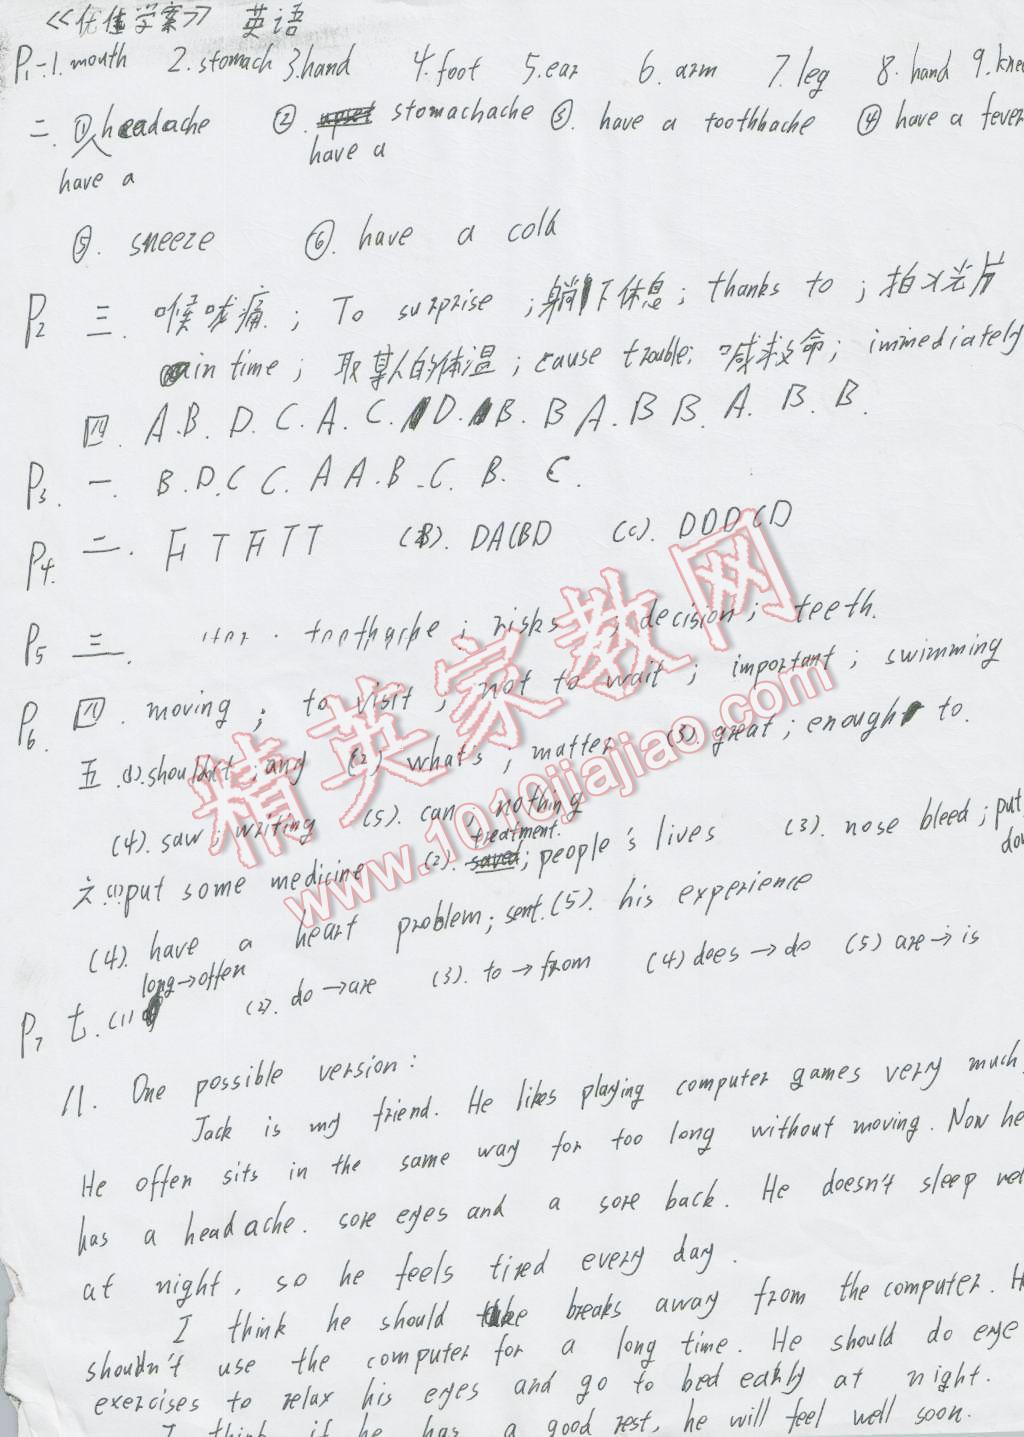 《优值学案》 英语
P1 一.1.mouth 2.stomach 3.hand 4.foot 5.ear 6.arm 7.leg 8.hand 9.knee
二. ① headache ② stomachache ③. have a toothbache ④ have a fever
have a have a
⑤. sneeze ⑥. have a cold
P2 三. 喉咙痛; To surprise ; 躺下休息; thanks to ; 拍X光片
in time; 取某人的体温; cause trouble; 喊救命; immediately
四. A.B. D. C. A. C. D. B. B A. B B. A. B. B.
P3. 一. B.D.C C. A A.B.C. B. C.
P4. 二. F T F T T (B). DACBD (C). DDDCD
P5 三. toothache; risks ; decision; teeth.
P6 四. moving; to visit; not to wait; important; swimming
五.(1).shouldn't; any (2) what's; matter (3). great; enough to.
(4). saw; writing (5). can, nothing
treatment.
六.(1)put some medicine (2). ; people's lives (3). nose bleed; put
down
(4). have a heart problem; sent.(5). his experience
long→often
P7 七.(1) (2). do→are (3). to→from (4) does→do (5) are→is
八. One possible version:
Jack is my friend. He likes playing computer games very much.
He often sits in the same way for too long without moving. Now he
has a headache. sore eyes and a sore back. He doesn't sleep well
at night, so he feels tired every day.
I think he should take breaks away from the computer. He
shouldn't use the computer for a long time. He should do eye
exercises to relax his eyes and go to bed early at night.
I think if he has a good rest, he will feel well soon.
精英家教网
www.1010jiajiao.com